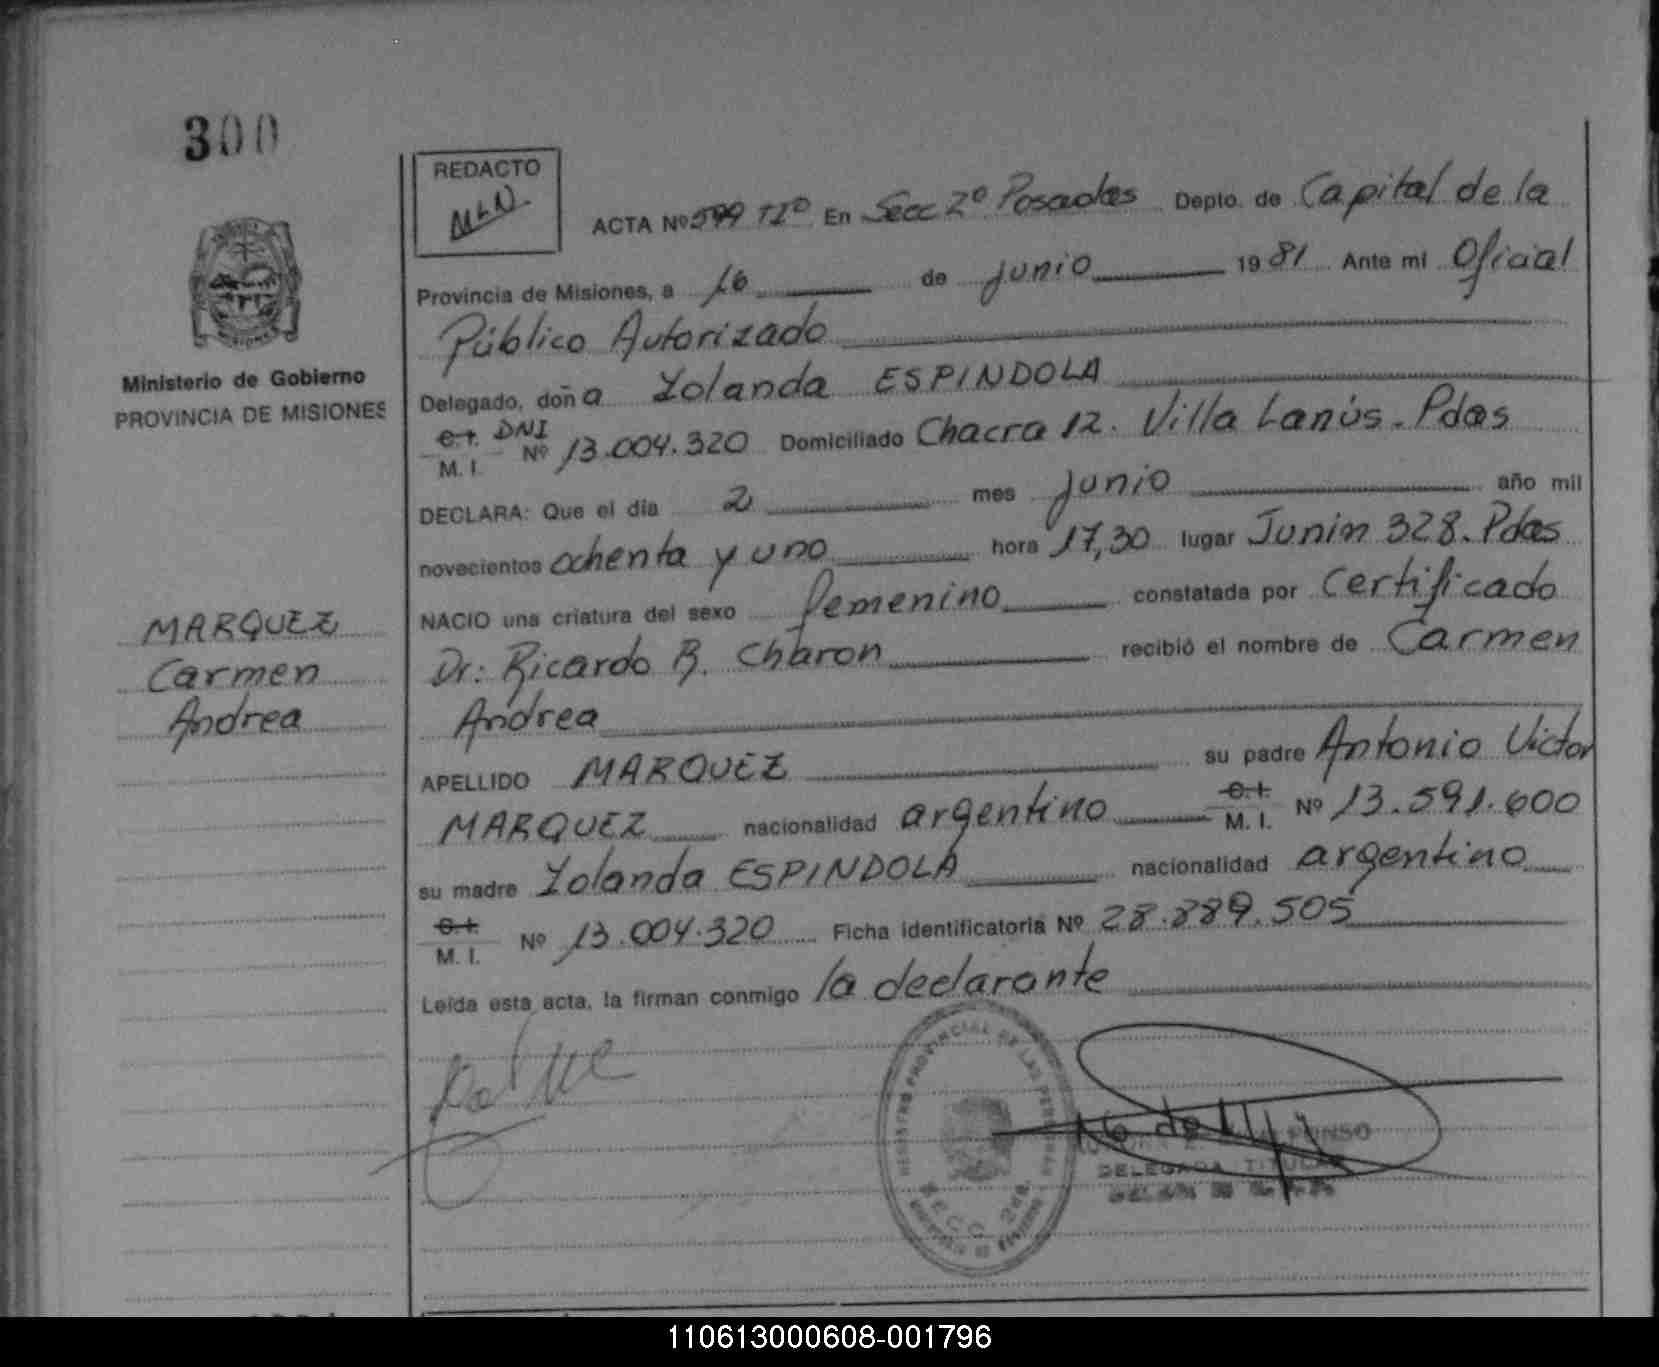 300
REDACTO
ACTA Nº 599 TIº En Secc 2º Posadas Depto. de Capital de la
Provincia de Misiones, a 16 de junio 1981 Ante mi Oficial
Público Autorizado
Ministerio de Gobierno
PROVINCIA DE MISIONES
Delegado, doña Yolanda ESPINDOLA
C.I. DNI
M. I. Nº 13.004.320 Domiciliado Chacra 12. Villa Lanús. Pdas
DECLARA: Que el día 2 mes junio año mil
novecientos ochenta y uno hora 17,30 lugar Junin 328. Pdas
NACIO una criatura del sexo femenino constatada por Certificado
Dr: Ricardo R. Charon recibió el nombre de Carmen
Andrea
MARQUEZ
Carmen
Andrea
APELLIDO MARQUEZ su padre Antonio Victor
MARQUEZ nacionalidad argentino C.I. M. I. Nº 13.591.600
su madre Yolanda ESPINDOLA nacionalidad argentino
C.I. M. I. Nº 13.004.320 Ficha identificatoria Nº 28.889.505
Leída esta acta, la firman conmigo la declarante
REGISTRO PROVINCIAL DE LAS PERSONAS
SECC 2da.
DELEGADA TITULAR
110613000608-001796